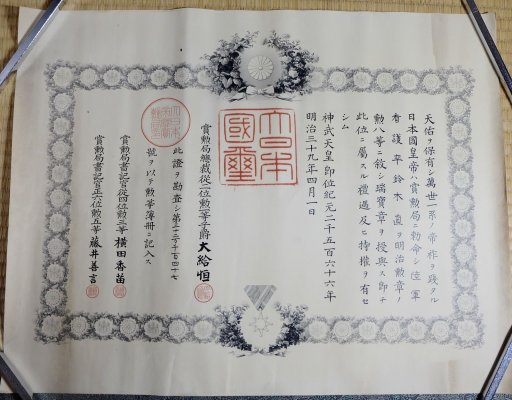 天佑ヲ保有シ萬世一系ノ帝祚ヲ踐タル
日本國皇帝ハ賞勲局ニ勅命シ陸軍
看護卒鈴木直ヲ明治勲章ノ
勲八等ニ敘シ瑞寶章ヲ授與ス即チ
此位ニ屬スル禮遇及ヒ特權ヲ有セ
シム
神武天皇即位紀元二千五百六十六年
明治三十九年四月一日
大日本國璽
賞勲局總裁從二位勲一等子爵大給恒
此證ヲ勘査シ第
號ヲ以テ勲等簿冊ニ記入ス
賞勲局書記官從四位勲三等横田香苗
賞勲局書記官正六位勲五等藤井善言